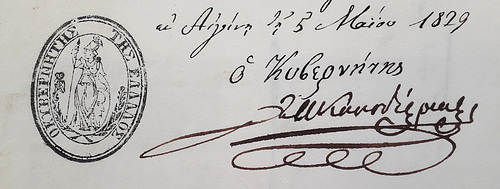 Ο ΚΥΒΕΡΝΗΤΗΣ ΤΗΣ ΕΛΛΑΔΟΣ
ἐν Αἰγίνῃ τῇ 5 Μαΐου 1829
ὁ Κυβερνήτης
Ι.Α. Καποδίστριας